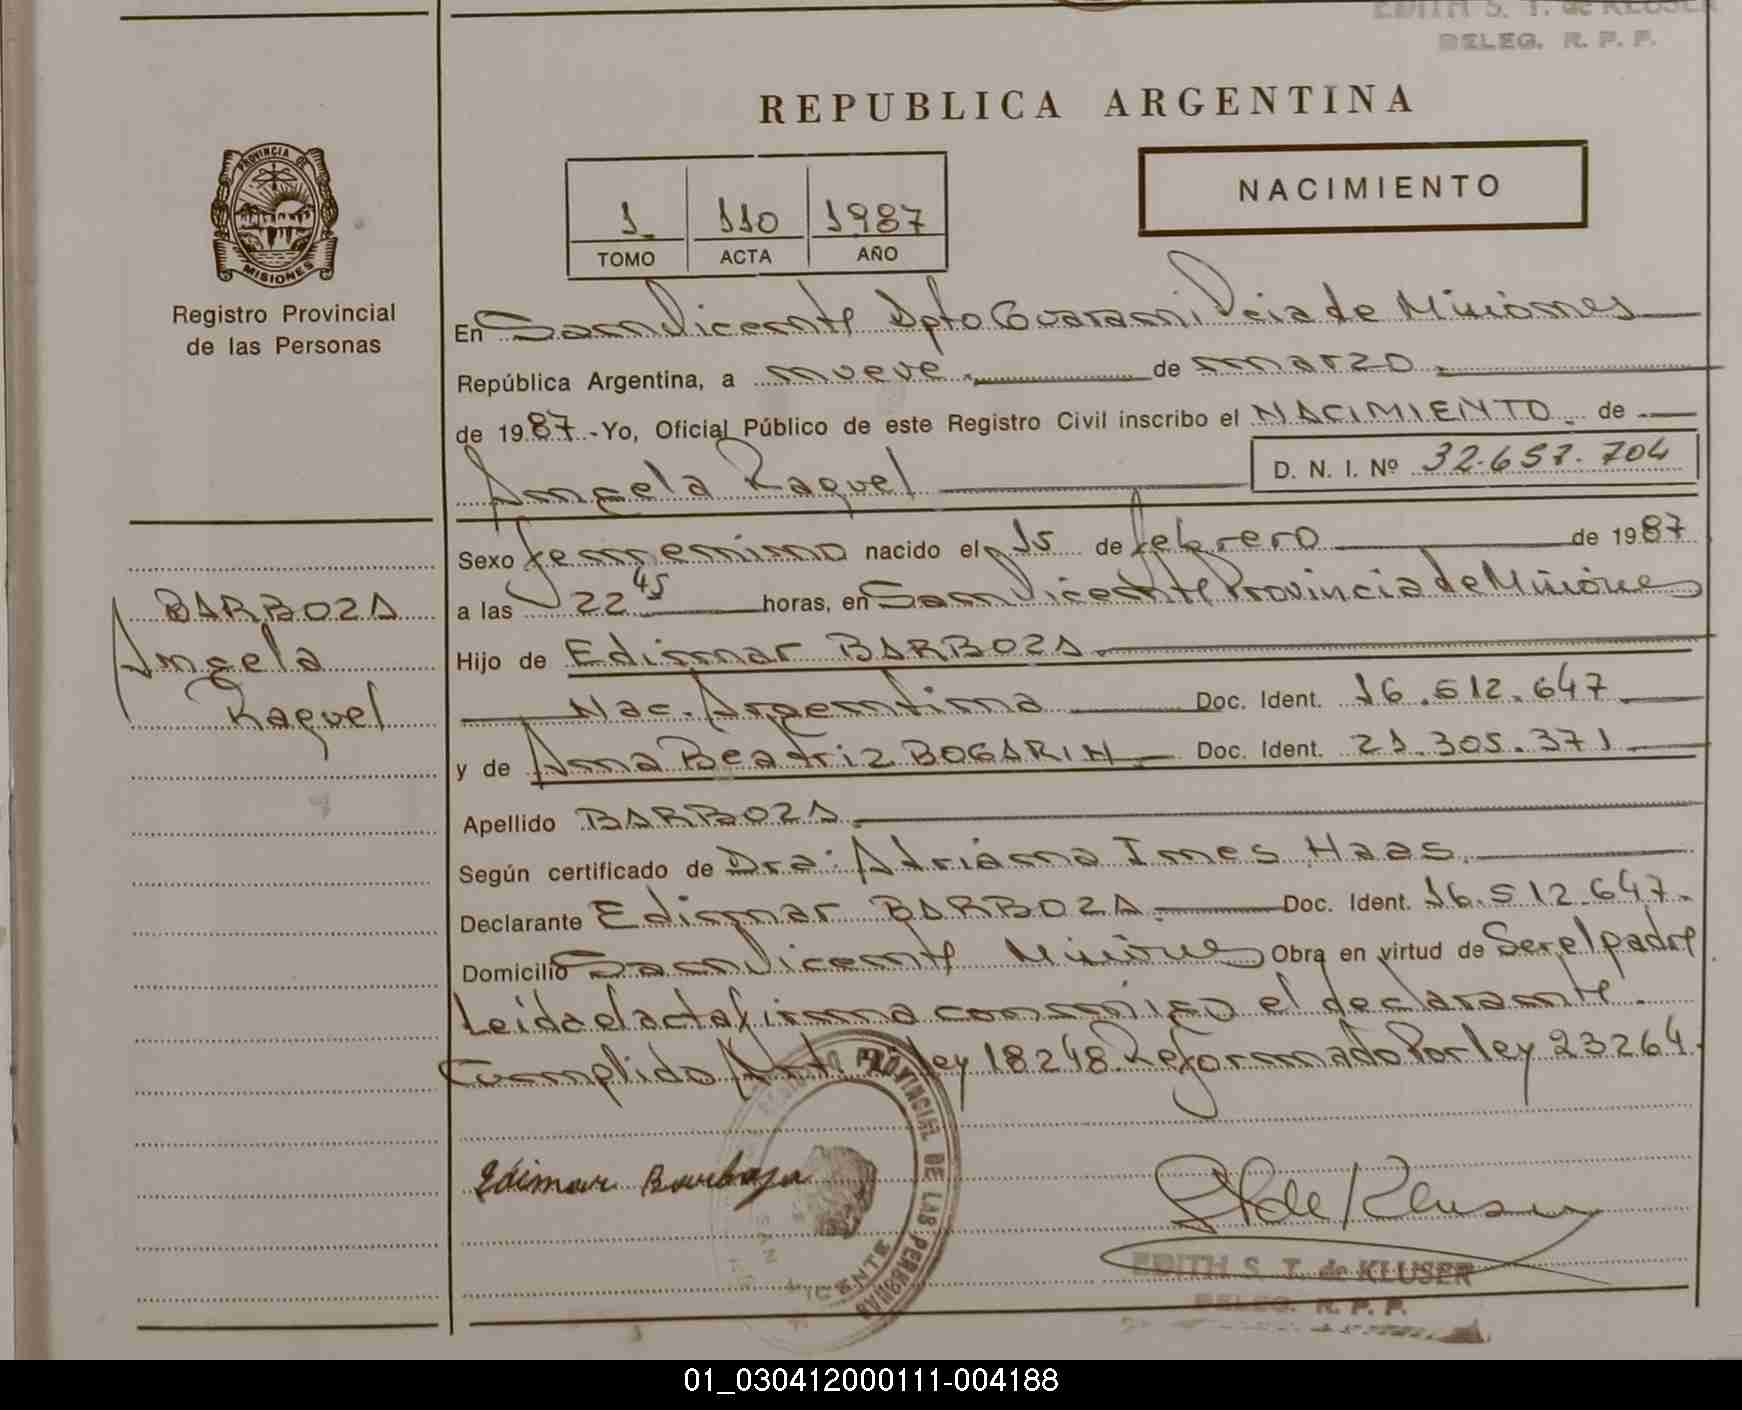 EDITH S. T. de KLUSER
DELEG. R. P. P.
REPUBLICA ARGENTINA
PROVINCIA DE
MISIONES
Registro Provincial
de las Personas
1 110 1987
TOMO ACTA AÑO
NACIMIENTO
En San Vicente Dpto Guarani Pcia de Misiones
República Argentina, a nueve de marzo
de 1987 - Yo, Oficial Público de este Registro Civil inscribo el NACIMIENTO de
Angela Raquel D. N. I. Nº 32.657.704
Sexo femenino nacido el 15 de febrero de 1987
a las 22 45 horas, en San Vicente Provincia de Misiones
BARBOZA
Angela
Raquel
Hijo de Edimar BARBOZA
Nac. Argentina Doc. Ident. 16.512.647
y de Ana Beatriz BOGARIN Doc. Ident. 21.305.371
Apellido BARBOZA
Según certificado de Dra: Adriana Ines Haas
Declarante Edimar BARBOZA Doc. Ident. 16.512.647.
Domicilio San Vicente Misiones Obra en virtud de Ser el padre
Leida el acta firma conmigo el declarante.
Cumplido Art. ley 18248. Reformado Por ley 23264.
PROVINCIAL DE LAS PERSONAS
SAN VICENTE
Edimar Barboza
EDITH S. T. de KLUSER
DELEG. R. P. P.
01_030412000111-004188